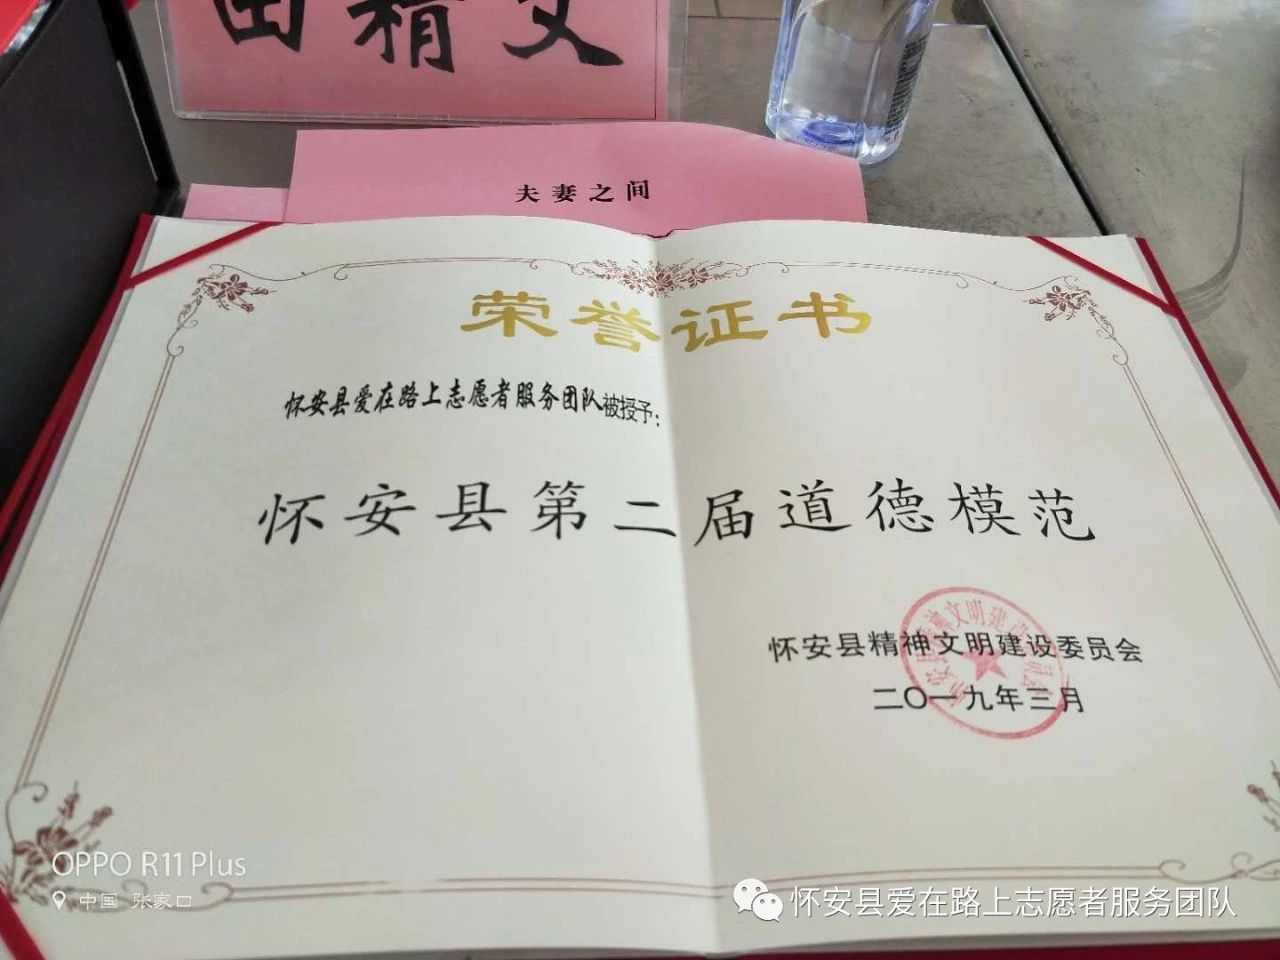 田精文
夫妻之间
荣誉证书
怀安县爱在路上志愿者服务团队被授予：
怀安县第二届道德模范
怀安县精神文明建设委员会
二〇一九年三月
OPPO R11 Plus
中国 张家口
怀安县爱在路上志愿者服务团队